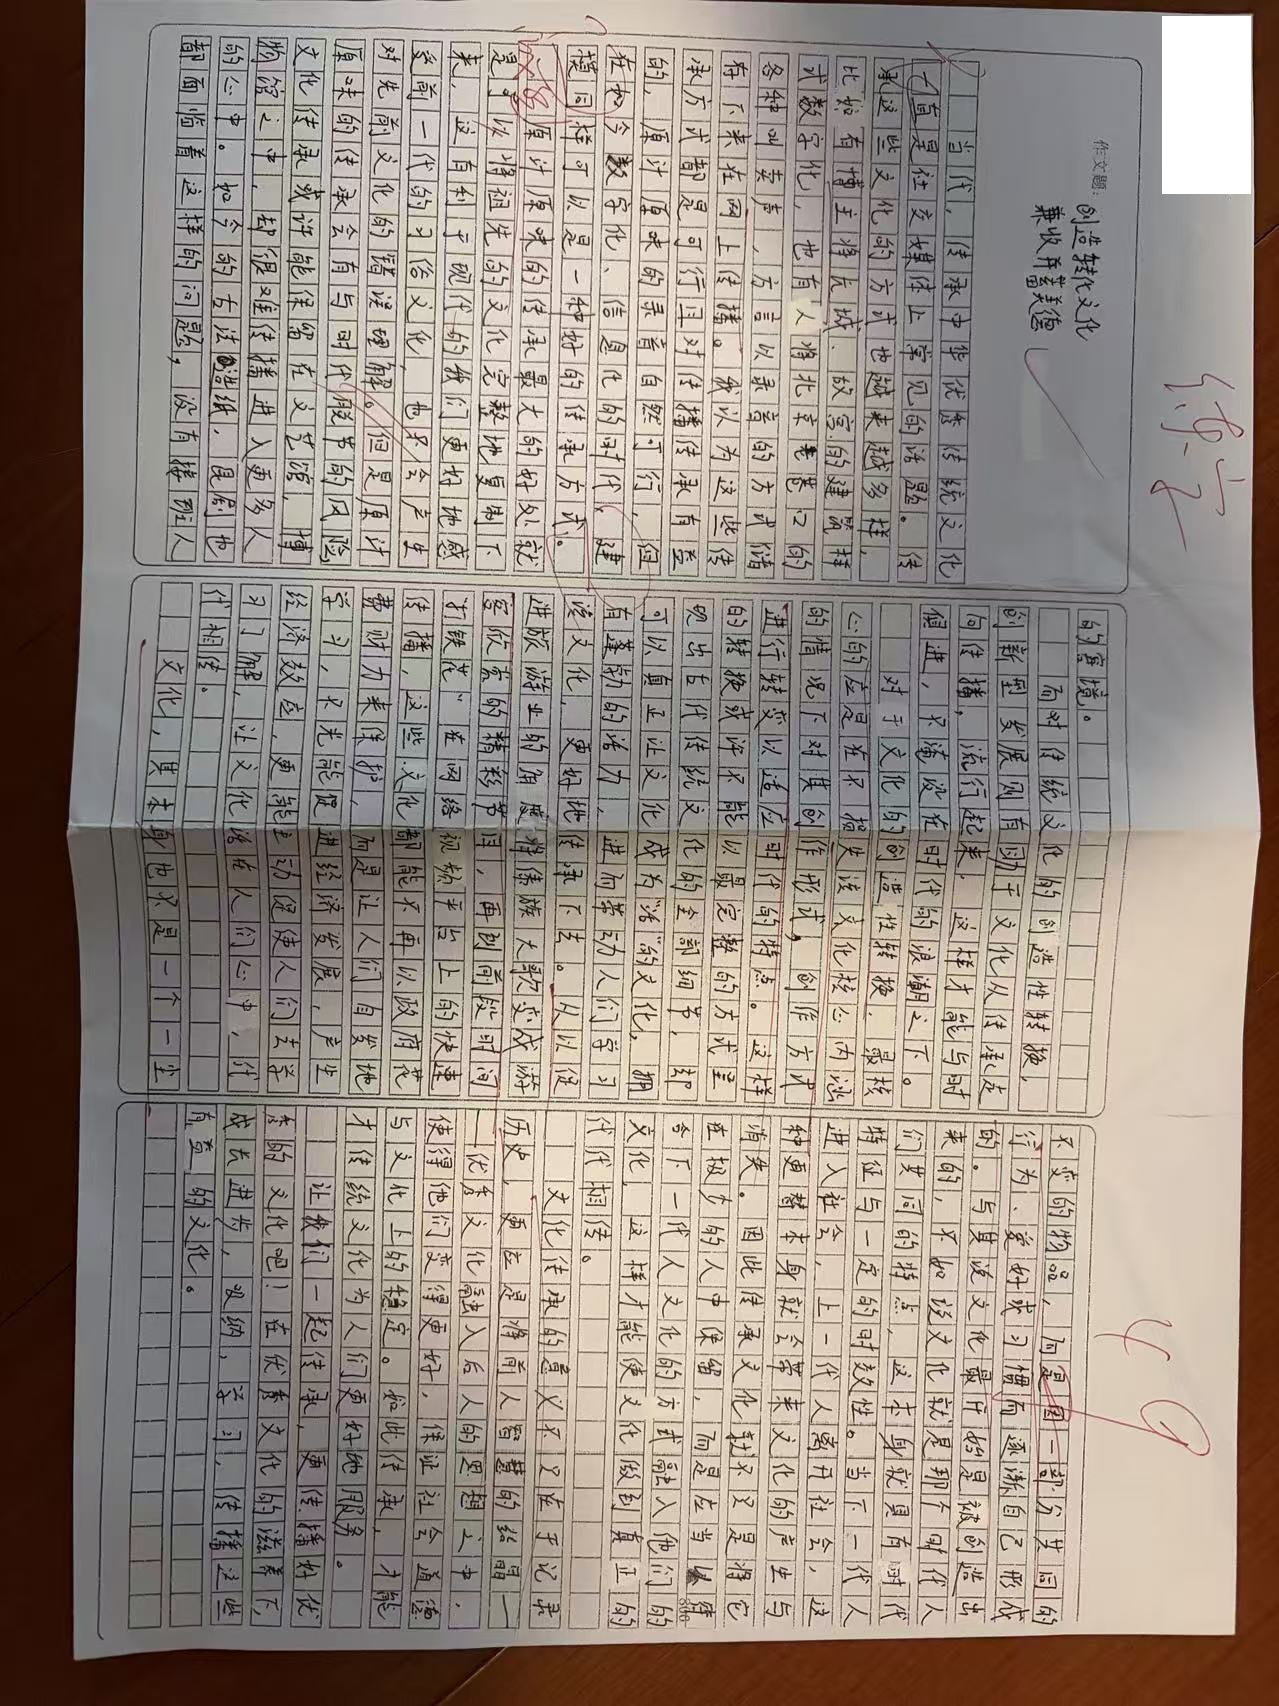 作文题:
创造转化文化
兼收并蓄美德
综二
49
当代，传承中华优秀传统文化
一直是社交媒体上常见的话题。传
承这些文化的方式也越来越多样，
比如有博主将长城、故宫的建筑样
式数字化，也有人将北京老巷口的
各种叫卖声，方言以录音的方式储
存下来在网上传播。我以为这些传
承方式都是可行且对传播传承有益
的，原汁原味的录音自然可行，但
在如今数字化、信息化的时代，建
模同样可以是一种好的传承方式。
原汁原味的传承最大的好处就
是可以将祖先的文化完整地复制下
来，这有利于现代的我们更好地感
受前一代的习俗文化，也不会产生
对先前文化的错误理解。但是原汁
原味的传承会有与时代脱节的风险
文化传承或许能保留在文艺馆，博
物馆之中，却很难传播进入更多人
的心中。如今的古法造纸，昆剧也
都面临着这样的问题，没有接班人
的窘境。
而对传统文化的创造性转换，
创新型发展则有助于文化从传承走
向传播，流行起来，这样才能与时
俱进，不淹没在时代的浪潮之下。
对于文化的创造性转换，最核
心的应是在不损失该文化核心内涵
的情况下对其创作形式，创作方式
进行转变以适应时代的特点。这样
的转换或许不能以最完整的方式呈
现出古代传统文化的全部细节，却
可以真正让文化成为“活”的文化，拥
有蓬勃的活力，进而带动人们学习
该文化，更好地传承下去。从以促
进旅游业的角度将侗族大歌变成游
客欣赏的精彩节目，再到前段时间
“打铁花”在网络视频平台上的快速
传播，这些文化都能不再以政府花
费财力来保护，而是让人们自发地
学习，不光能促进经济发展，产生
经济效应，更能主动促使人们去学
习了解，让文化活在人们心中，代
代相传。
文化，其本身也不是一个一尘
不变的物品，而是因一部分共同的
行为、爱好或习惯而逐渐自己形成
的。与其说文化最开始是被创造出
来的，不如说文化就是那个时代人
们共同的特点，这本身就具有时代
特征与一定的时效性。当下一代人
进入社会，上一代人离开社会，这
种更替本身就会带来文化的产生与
消失。因此传承文化就不只是将它
在极少的人中保留，而是应当以结
合下一代人文化的方式融入他们的
文化，这样才能使文化做到真正的
代代相传。
文化传承的意义不只在于记录
历史，更应是将前人智慧的结晶—
—优秀文化融入后人的思想之中，
使得他们变得更好，保证社会道德
与文化上的稳定。如此传承，才能
才传统文化为人们更好地服务。
让我们一起传承，更传播好优
秀的文化吧！在优秀文化的滋养下，
成长进步，吸纳，学习，传播这些
有益的文化。